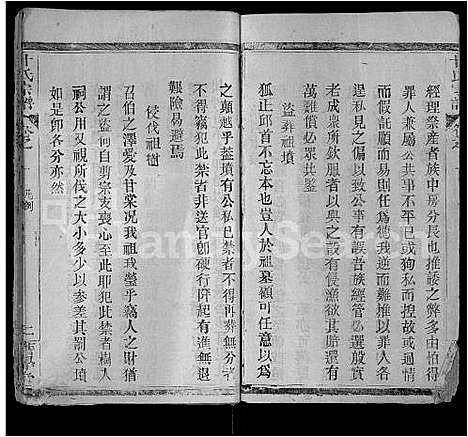 經理眾產者族中房分長也推諉之弊多由怕
罪人夫權共事不平已或狗私而捏故或過情
而假託顧而易則任為德我逆而難則罪人各
逞私見之偏以致公事有誤吾族經管必選殷實
老成眾所欽服者以與之設有侵漁欲其賠還有
增潰必眾共
盜葬祖墳
狐正邱首不忘本也豈人於祖墓顧可任意以為
之顛越乎葢墳有公私已禁者不得再葬無分者
不得竊犯此禁者非送官卽硬行阡起有無退
艱險易避焉
侵伐祖樹
召伯之澤愛及甘棠况我祖之瑩乎竊人之財猶
謂之盜何自剪宗支喪心至此耶犯此禁者樹入
祠公用又視所伐之大小多少以參差其罰公項
如是卽各分亦然
甘氏宗譜
凡例
二
FamilySearch